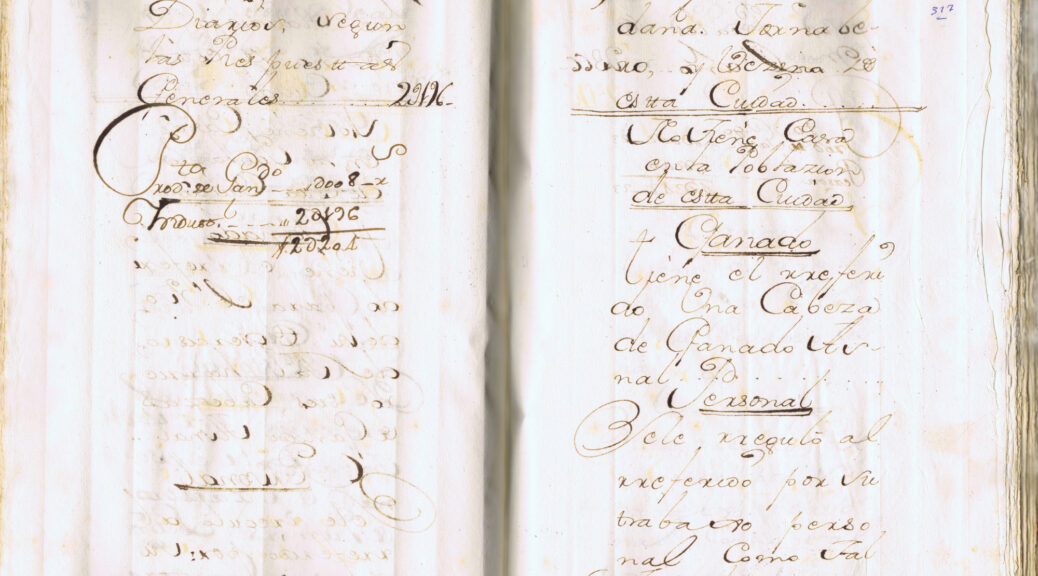 Diarios, segun
las Respuesttas
Generales ........ 29196.
Produ. de Gand.o ... 9008 - x
Yndust.l ... 29196
29204
317
dana. Jornale-
ro, y Vezino de
estta Ciudad ......
No tiene Cassa
en la Poblazion
de estta Ciudad
Ganado
tiene el rreferi
do Una Cabeza
de Ganado As-
nal
Personal
Sele rreguló al
rreferido por su
trabaxo perso
nal como tal